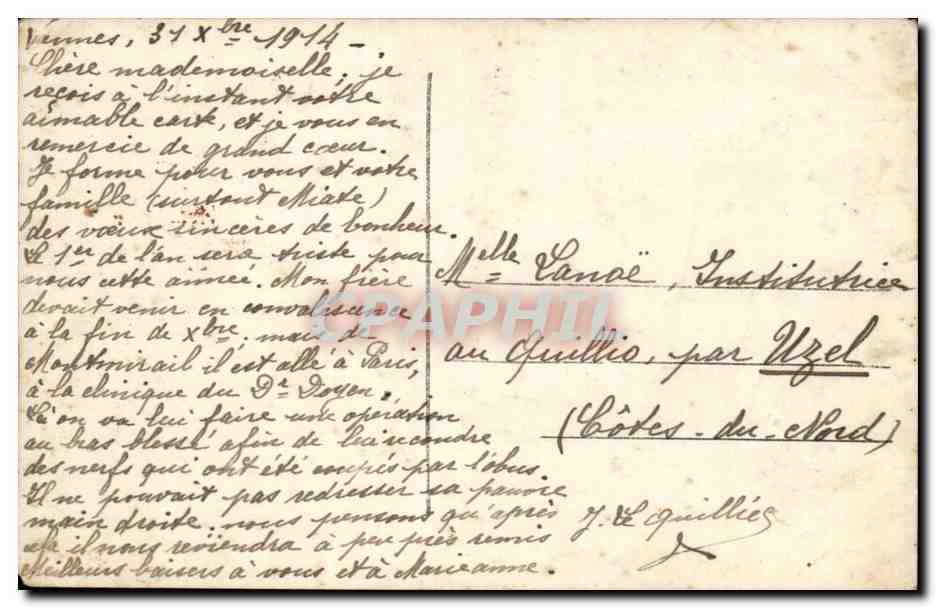 Vannes, 31 Xbre 1914 –
Chère mademoiselle, je
reçois à l'instant votre
aimable carte, et je vous en
remercie de grand cœur.
Je forme pour vous et votre
famille (surtout Miate)
des vœux sincères de bonheur.
Le 1er de l'an sera triste pour
nous cette année. Mon frère
devait venir en convalescence
à la fin de Xbre, mais de
Montmirail il est allé à Paris,
à la clinique du Dr Doyen.
Là on va lui faire une opération
au bras blessé afin de lui recoudre
des nerfs qui ont été coupés par l'obus.
Il ne pouvait pas redresser sa pauvre
main droite. nous pensons qu'après
cela il nous reviendra à peu près remis
Meilleurs baisers à vous et à Marieanne.
J. Le Quilliec
Melle Lanoë, Institutrice
au Quillio, par Uzel
(Côtes-du-Nord)
CPAPHIL